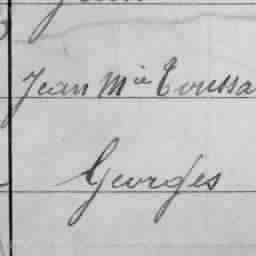 Jean Mie Toussa
Georges